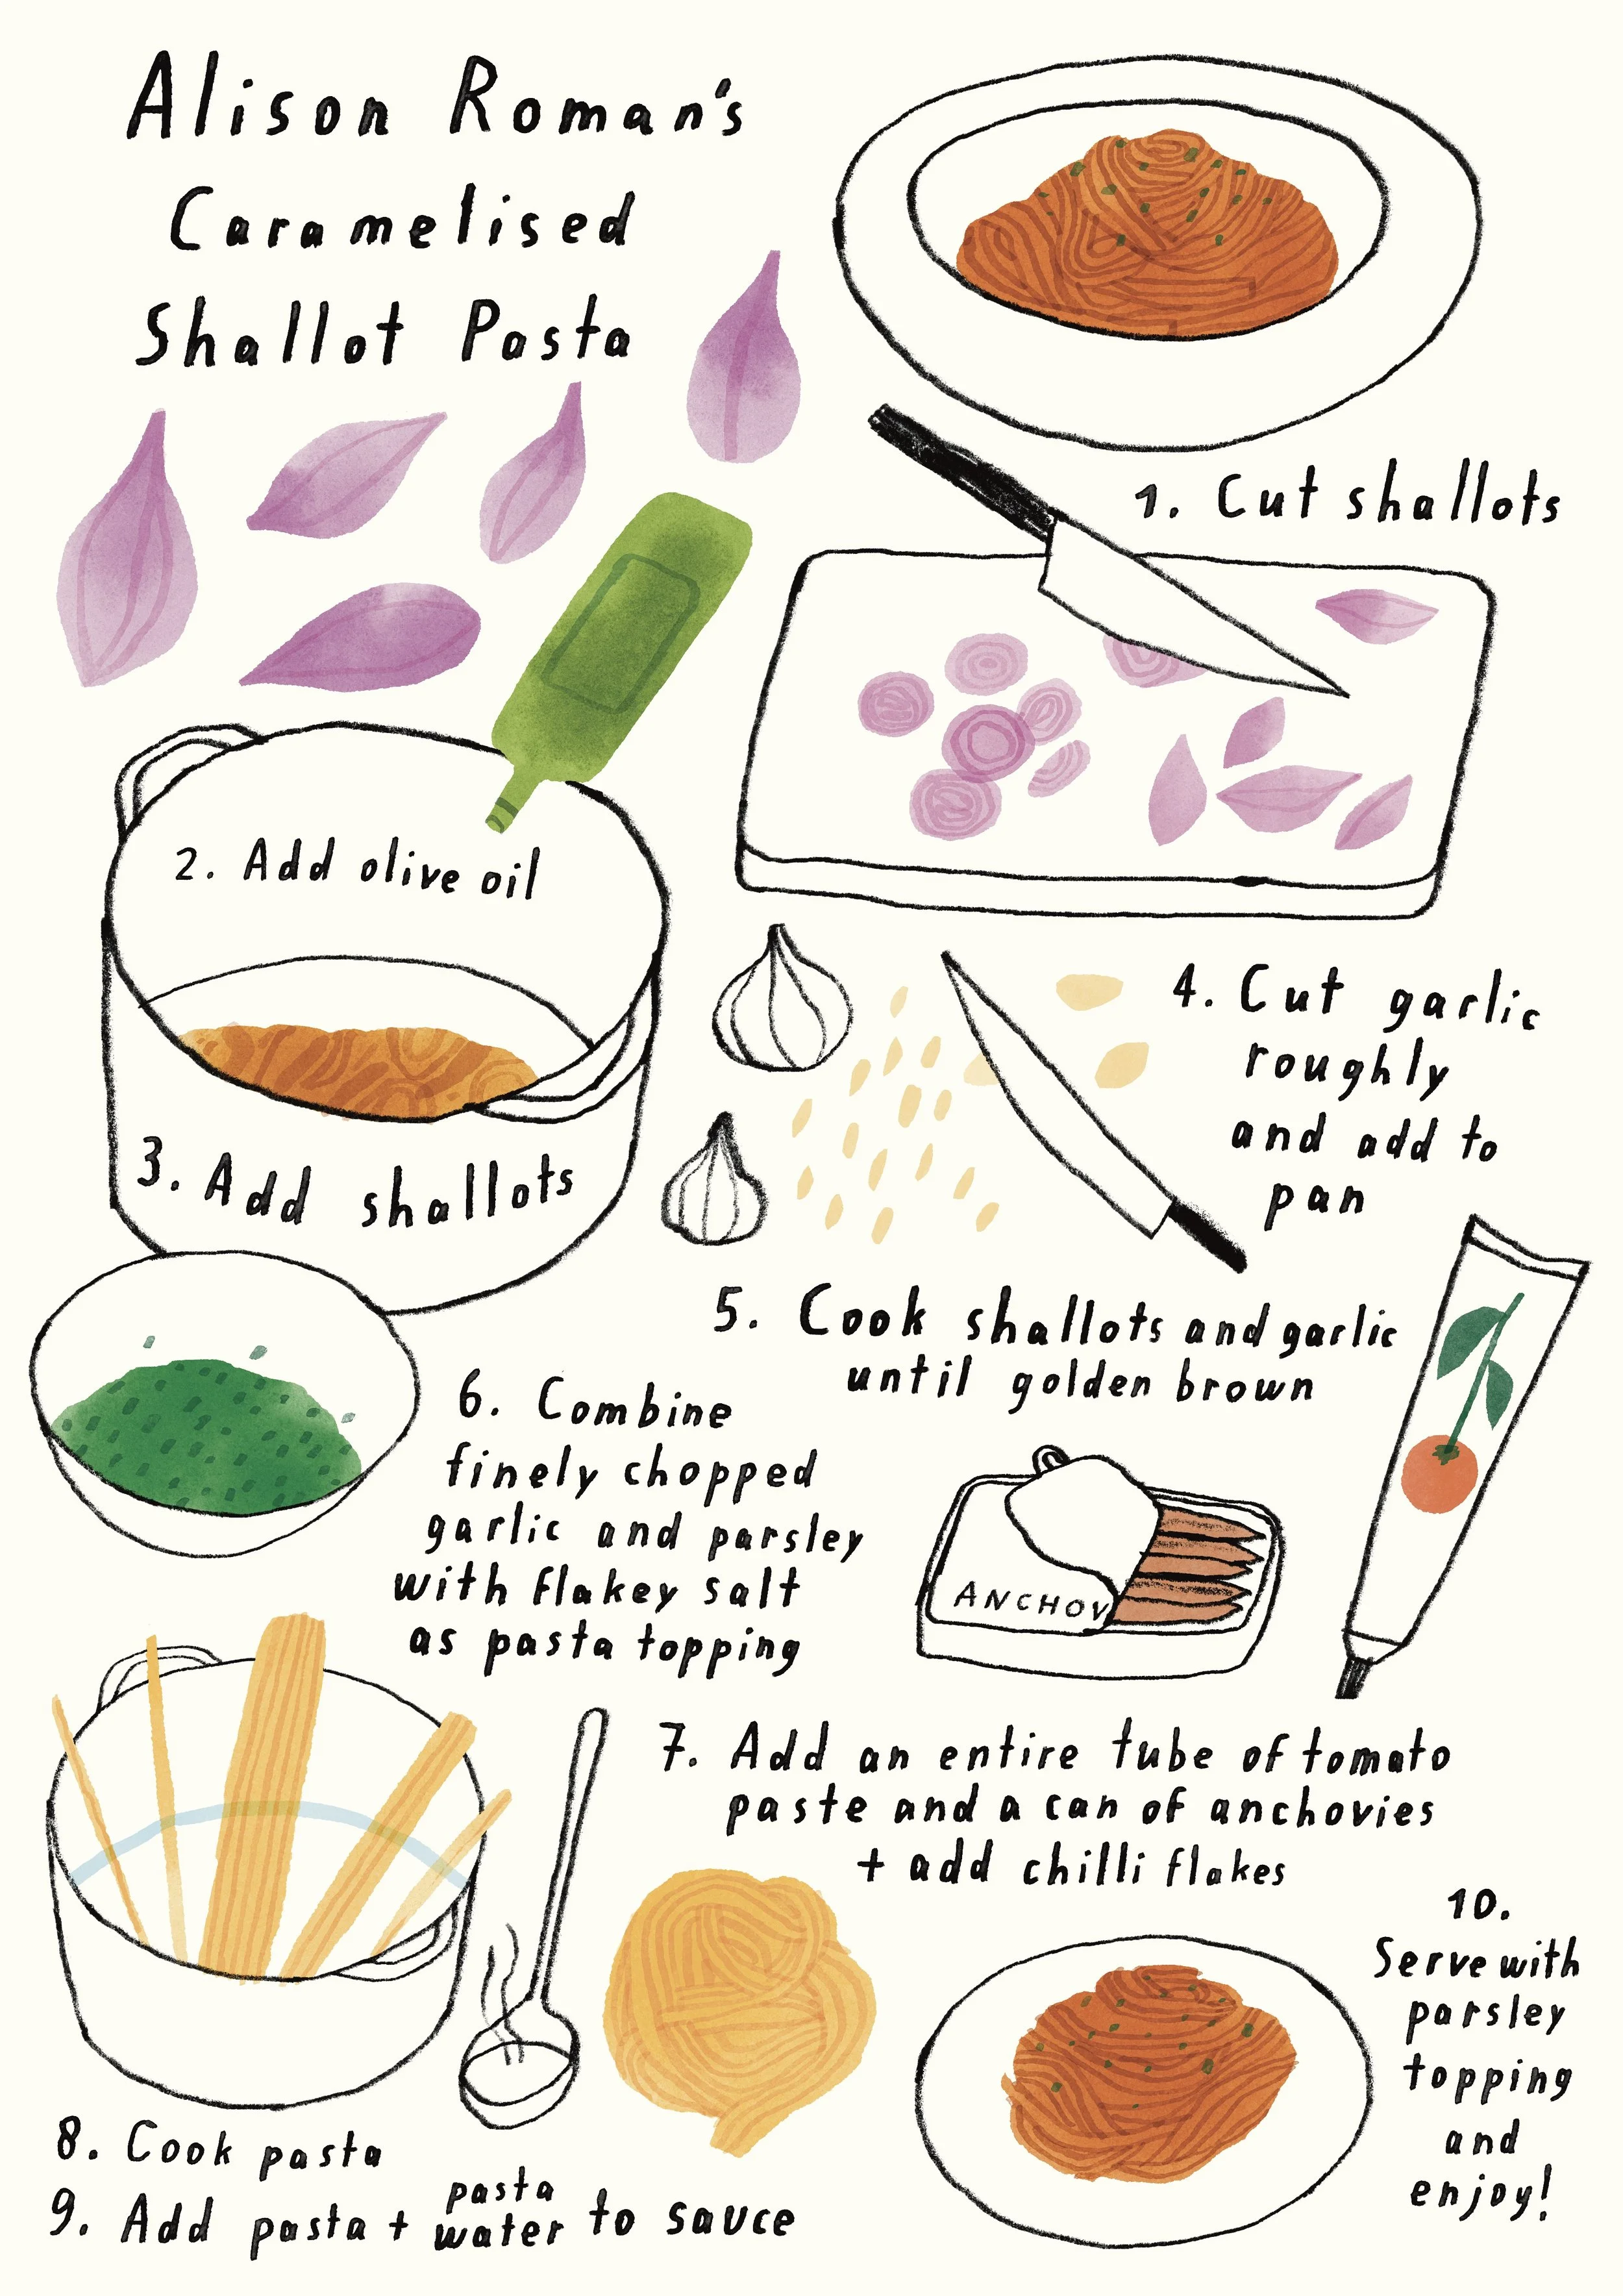 Alison Roman's
Caramelised
Shallot Pasta
1. Cut shallots
2. Add olive oil
3. Add shallots
4. Cut garlic
roughly
and add to
pan
5. Cook shallots and garlic
until golden brown
6. Combine
finely chopped
garlic and parsley
with flakey salt
as pasta topping
ANCHOV
7. Add an entire tube of tomato
paste and a can of anchovies
+ add chilli flakes
8. Cook pasta
9. Add pasta + pasta water to sauce
10.
Serve with
parsley
topping
and
enjoy!